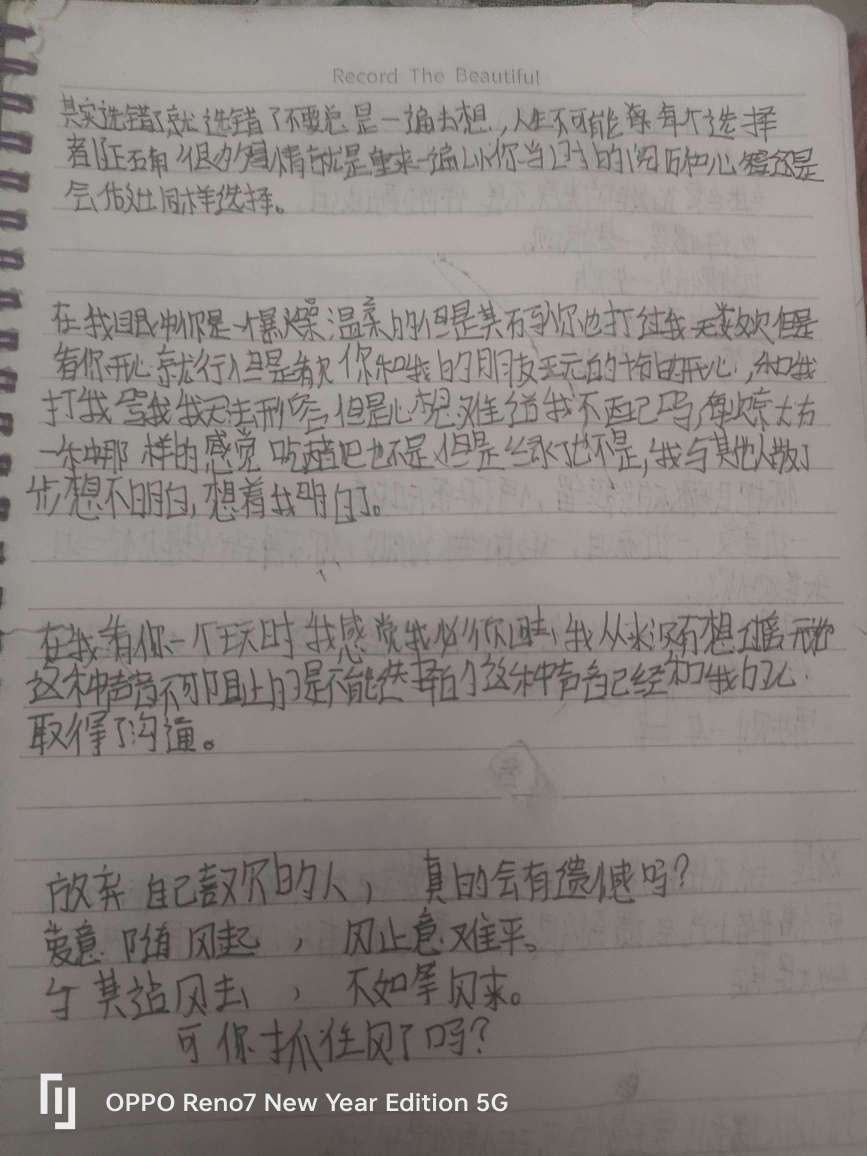 Record The Beautiful
其实选错了就选错了不要总是一遍去想，人生不可能每个选择
都正确 很多事情就是重来一遍以你当时的阅历和心智还是
会做出同样选择。
在我眼中你是个暴燥温柔的但是其实你也打过我无数次但是
看你开心就行但是每次你和我的朋友玩的格的开心，和我
打我骂我我无法形容但是心想难道我不配吗，每次
一种那样的感觉 吃醋吧也不是但是 也不是，我与其他人散了
步想不明白，想着我明白了。
在我看你一个玩时我感觉我必你 我从来没有想过
这种声音不可阻止的是不能选择的这种声音已经和我的心
取得了沟通。
放弃自己喜欢的人，真的会有遗憾吗？
意随风起，风止意难平。
与其追风去，不如等风来。
可你抓住风了吗？
OPPO Reno7 New Year Edition 5G